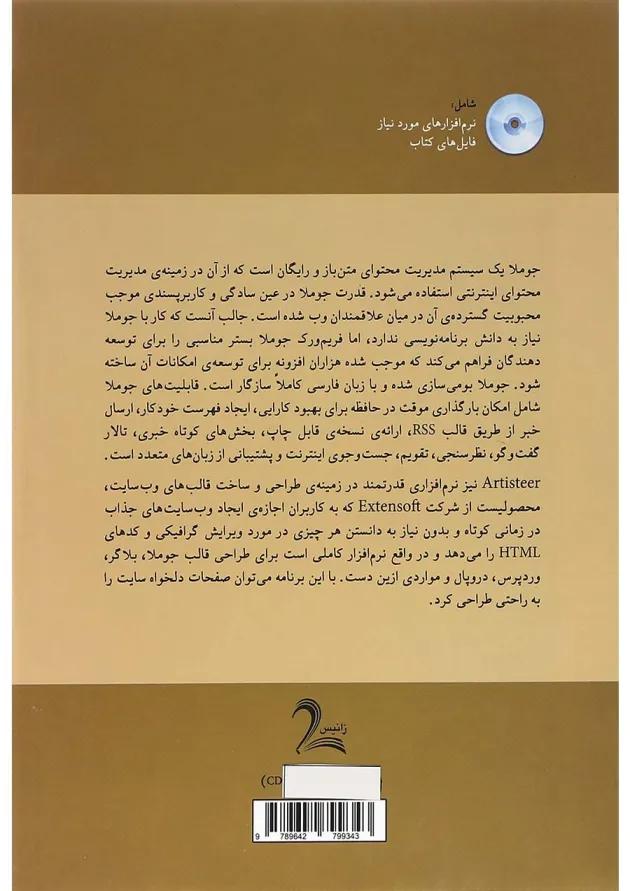 شامل:
نرم‌افزارهای مورد نیاز
فایل‌های کتاب
جوملا یک سیستم مدیریت محتوای متن‌باز و رایگان است که از آن در زمینه‌ی مدیریت
محتوای اینترنتی استفاده می‌شود. قدرت جوملا در عین سادگی و کاربرپسندی موجب
محبوبیت گسترده‌ی آن در میان علاقمندان وب شده است. جالب آنست که کار با جوملا
نیاز به دانش برنامه‌نویسی ندارد، اما فریم‌ورک جوملا بستر مناسبی را برای توسعه
دهندگان فراهم می‌کند که موجب شده هزاران افزونه برای توسعه‌ی امکانات آن ساخته
شود. جوملا بومی‌سازی شده و با زبان فارسی کاملاً سازگار است. قابلیت‌های جوملا
شامل امکان بارگذاری موقت در حافظه برای بهبود کارایی، ایجاد فهرست خودکار، ارسال
خبر از طریق قالب RSS، ارائه‌ی نسخه‌ی قابل چاپ، بخش‌های کوتاه خبری، تالار
گفت‌وگو، نظرسنجی، تقویم، جست‌وجوی اینترنت و پشتیبانی از زبان‌های متعدد است.
Artisteer نیز نرم‌افزاری قدرتمند در زمینه‌ی طراحی و ساخت قالب‌های وب‌سایت،
محصولیست از شرکت Extensoft که به کاربران اجازه‌ی ایجاد وب‌سایت‌های جذاب
در زمانی کوتاه و بدون نیاز به دانستن هر چیزی در مورد ویرایش گرافیکی و کدهای
HTML را می‌دهد و در واقع نرم‌افزار کاملی است برای طراحی قالب جوملا، بلاگر،
وردپرس، دروپال و مواردی ازین دست. با این برنامه می‌توان صفحات دلخواه سایت را
به راحتی طراحی کرد.
زانیس
(CD
9 789642 799343